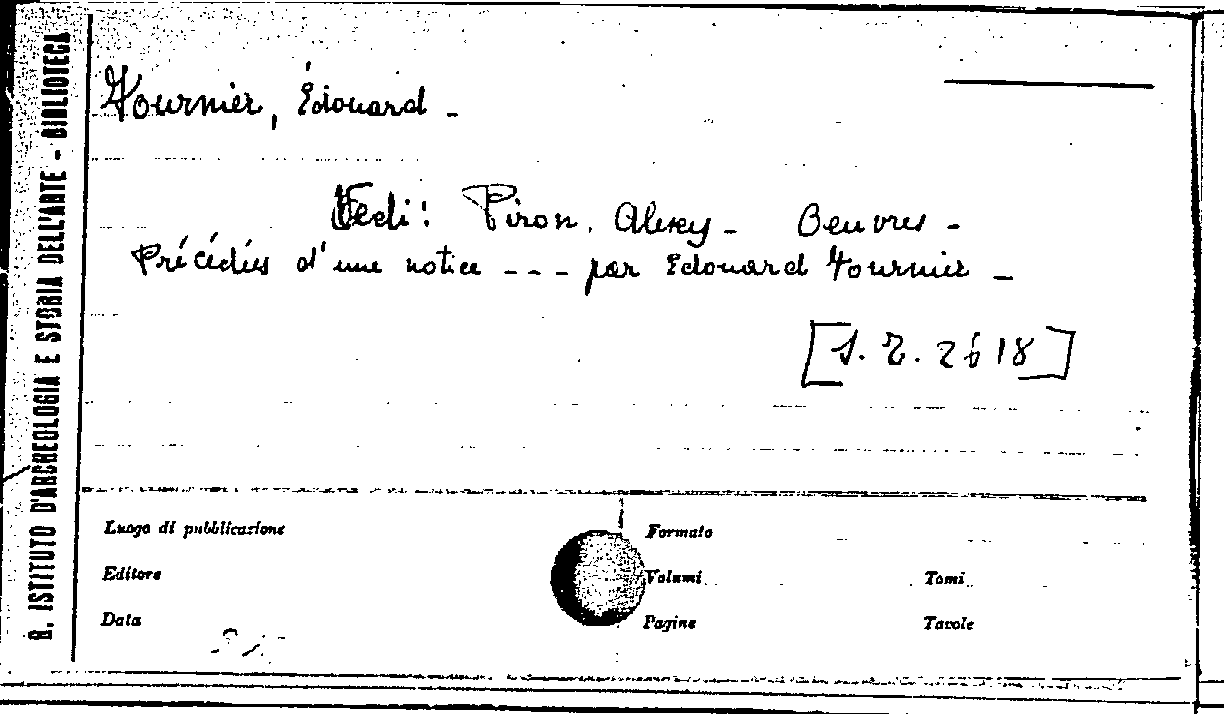 R. ISTITUTO D'ARCHEOLOGIA E STORIA DELL'ARTE - BIBLIOTECA
Fournier, Édouard -
Vedi: Piron, Alexy - Oeuvres -
Précédées d'une notice --- par Edouard Fournier -
[S. R. 26 18]
Luogo di pubblicazione
Formato
Editore
Volumi
Tomi
Data
Pagine
Tavole